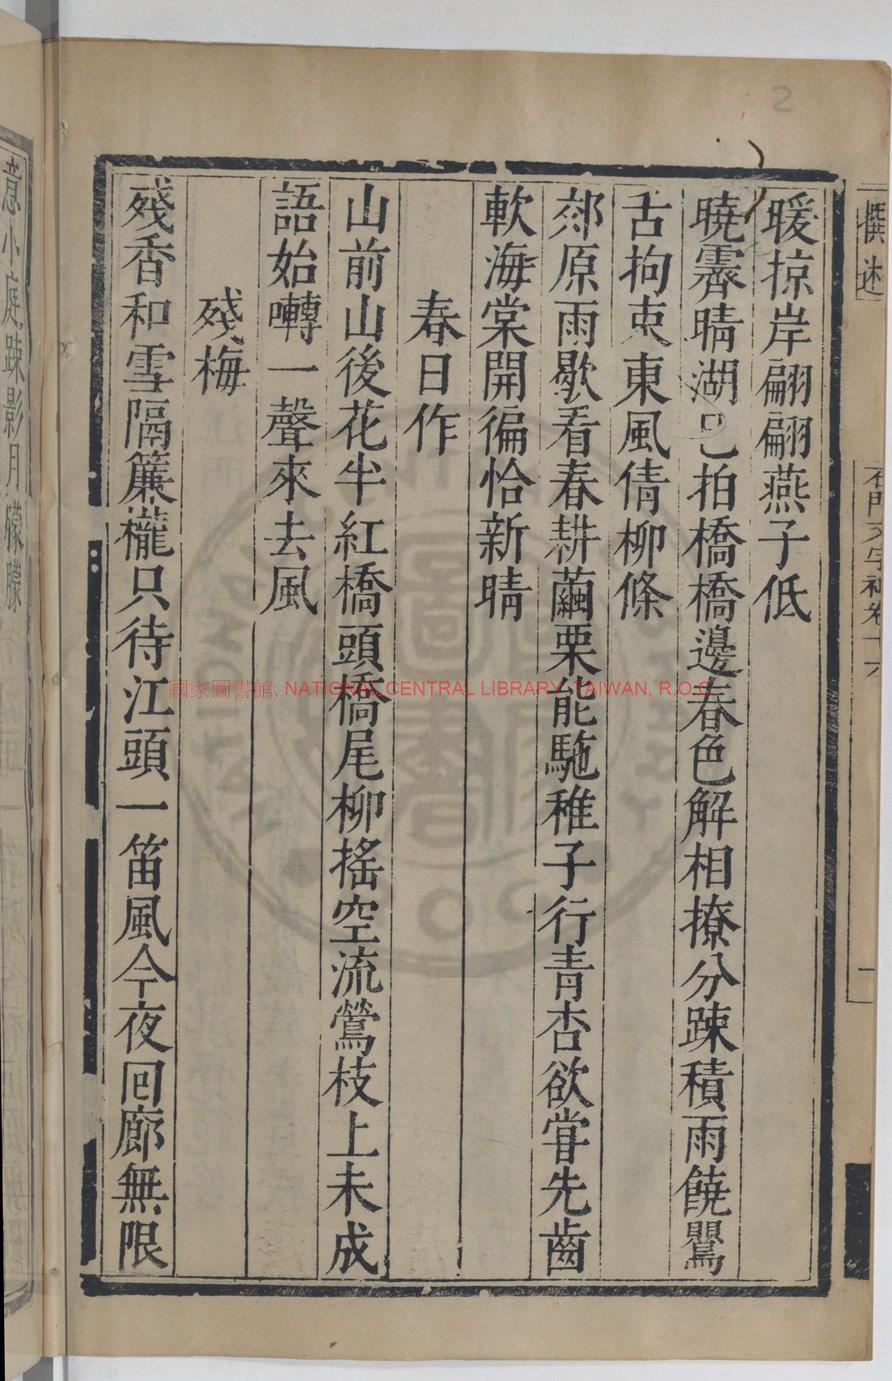 暖掠岸翩翩燕子低
曉霽晴湖已拍橋橋邊春色解相撩分踈積雨饒鸎
舌拘束東風倩柳條
郊原雨歇看春耕繭栗能馳稚子行青杏欲甞先齒
軟海棠開徧恰新晴
春日作
山前山後花半紅橋頭橋尾柳搖空流鶯枝上未成
語始囀一聲來去風
殘梅
殘香和雪隔簾櫳只待江頭一笛風今夜回廊無限
意小庭踈影月朦朦
撰述
石門文字禪卷十六
二
國家圖書館, NATIONAL CENTRAL LIBRARY, TAIWAN, R.O.C